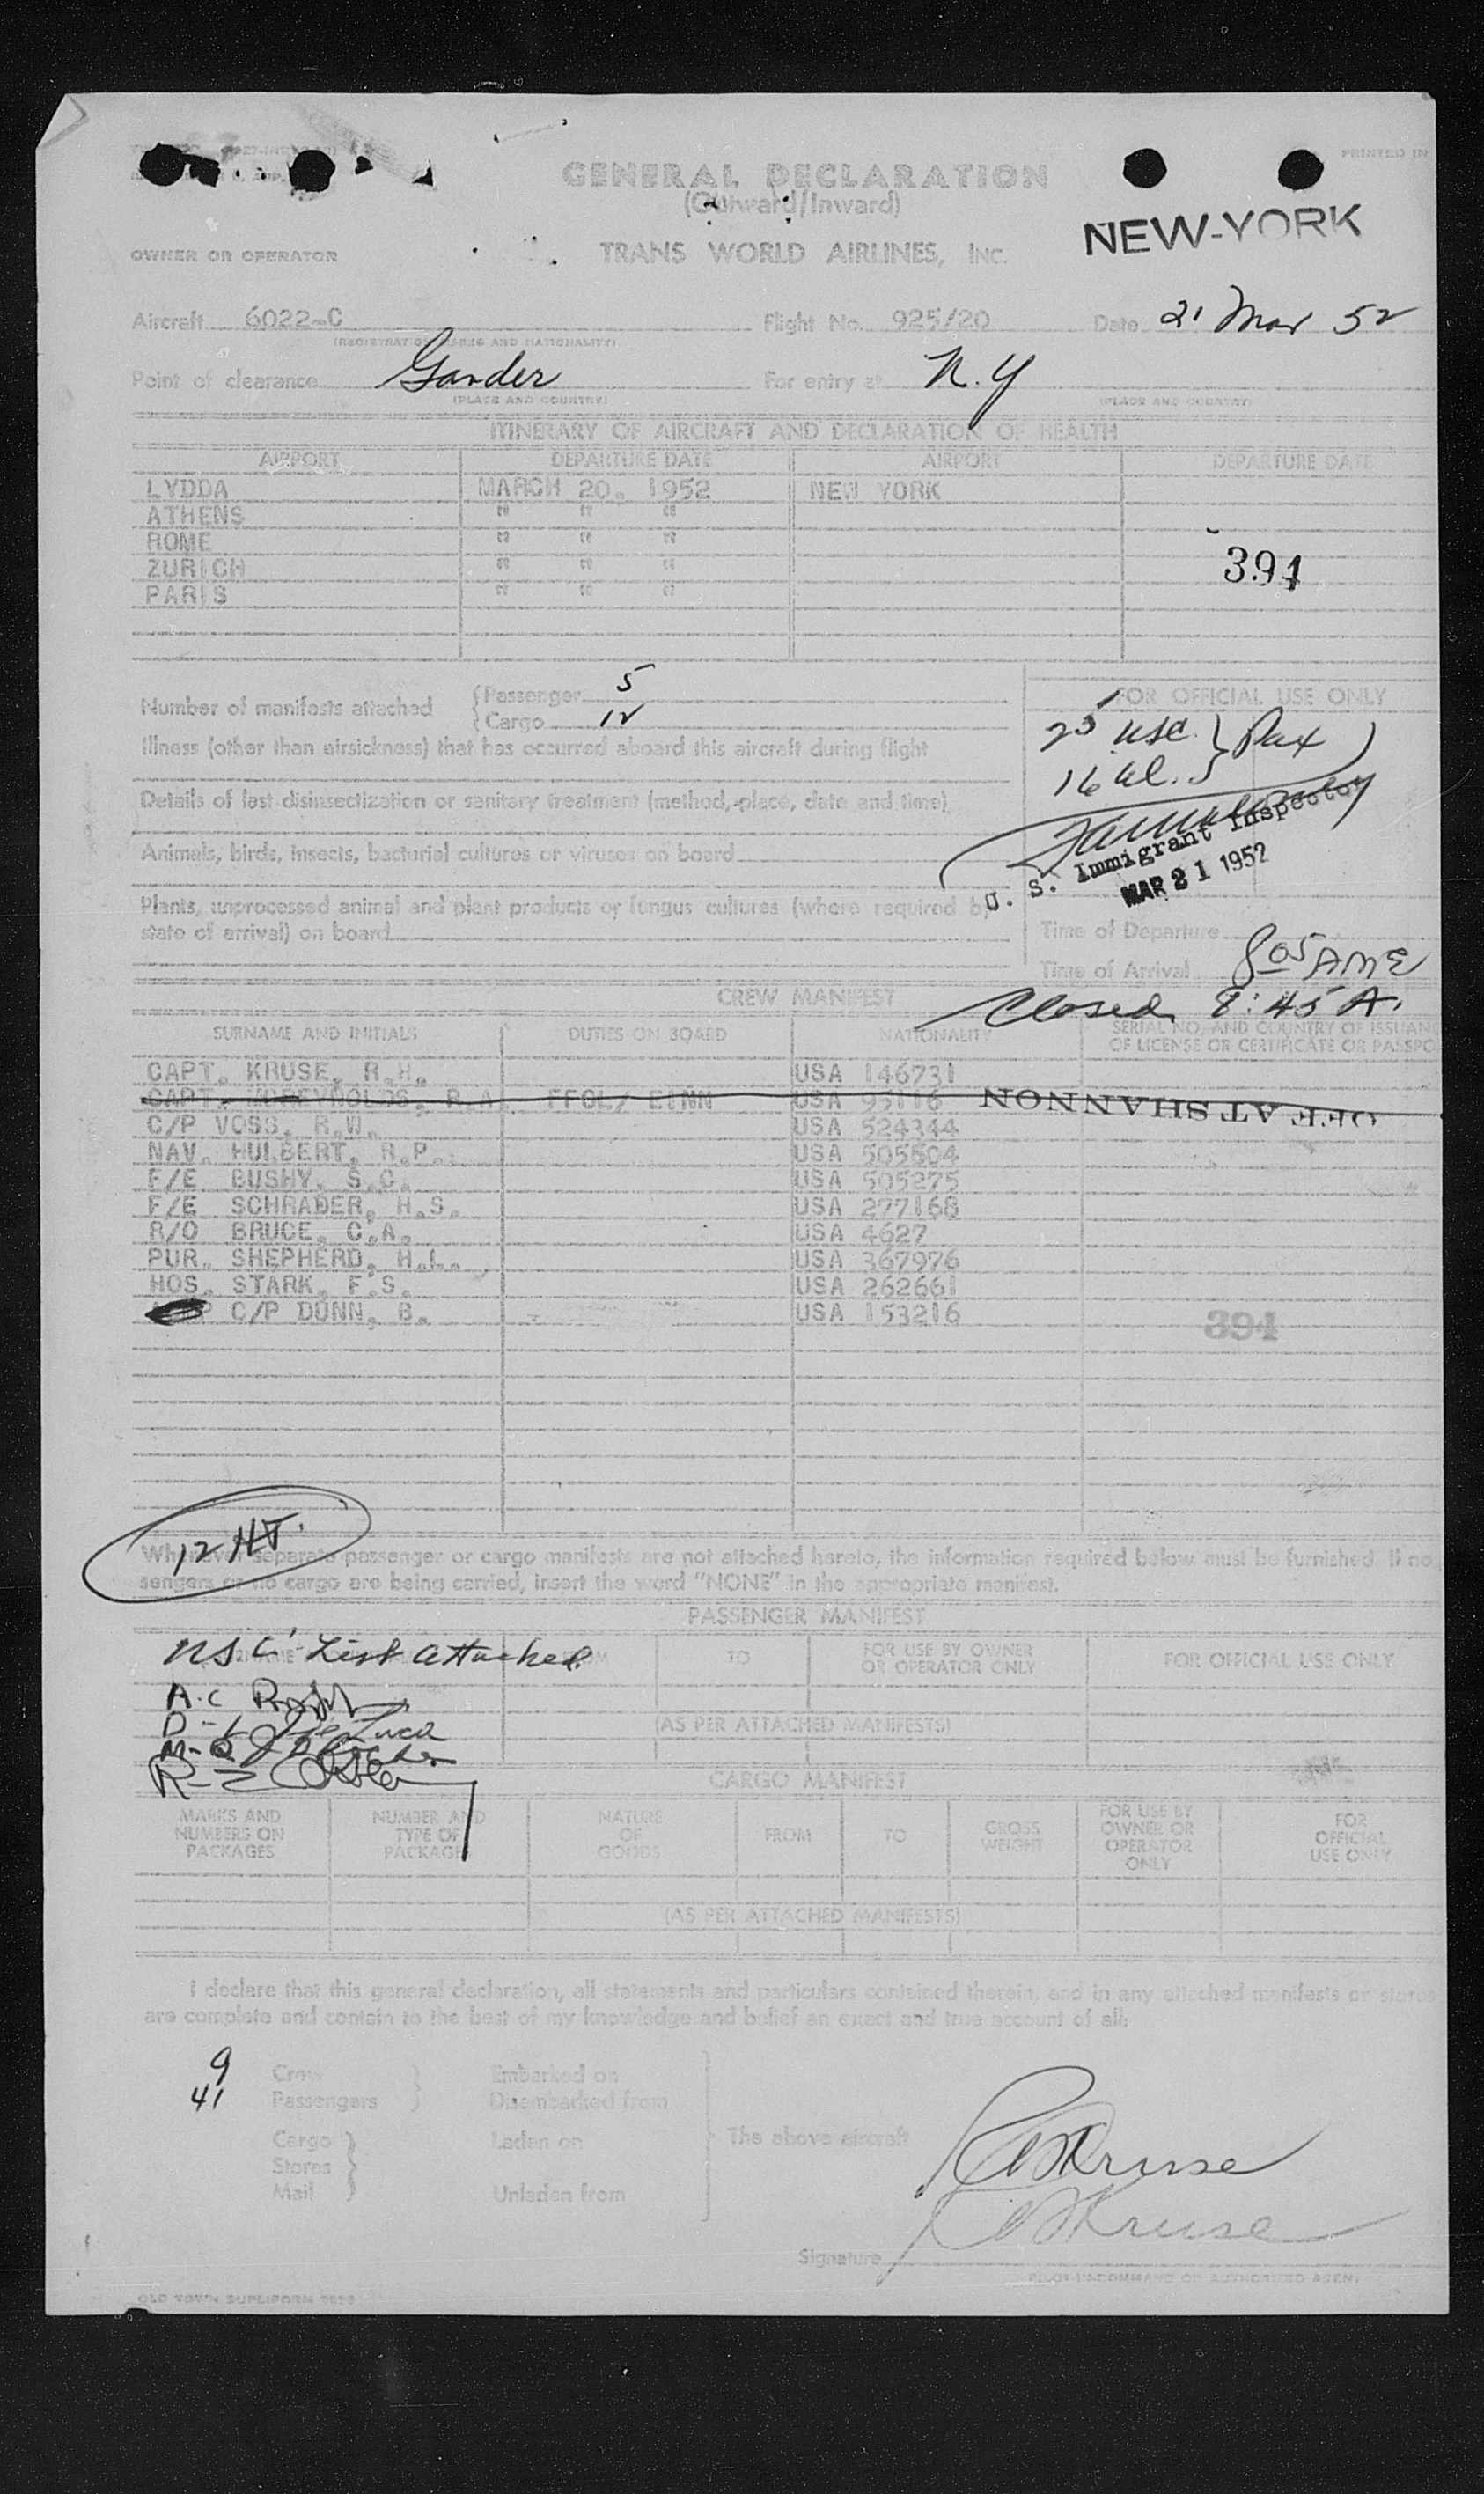 GENERAL DECLARATION
(Outward/Inward)
PRINTED IN
NEW-YORK
OWNER OR OPERATOR TRANS WORLD AIRLINES, INC.
Aircraft 6022-C Flight No. 925/20 Date 21 Mar 52
(REGISTRATION MARKS AND NATIONALITY)
Point of clearance Gander For entry at N.Y
(PLACE AND COUNTRY) (PLACE AND COUNTRY)
ITINERARY OF AIRCRAFT AND DECLARATION OF HEALTH
AIRPORT DEPARTURE DATE AIRPORT DEPARTURE DATE
LYDDA MARCH 20, 1952 NEW YORK
ATHENS " " "
ROME " " "
ZURICH " " "
PARIS " " "
394
Number of manifests attached Passenger 5
Cargo 12
FOR OFFICIAL USE ONLY
25 usc. } Pax
16 al.
Illness (other than airsickness) that has occurred aboard this aircraft during flight
Details of last disinsectization or sanitary treatment (method, place, date and time)
Animals, birds, insects, bacterial cultures or viruses on board
U. S. Immigrant Inspector
MAR 21 1952
Plants, unprocessed animal and plant products or fungus cultures (where required by
state of arrival) on board
Time of Departure
Time of Arrival 805 AME
Closed 8:45 A.
CREW MANIFEST
SURNAME AND INITIALS DUTIES ON BOARD NATIONALITY SERIAL NO. AND COUNTRY OF ISSUAN
OF LICENSE OR CERTIFICATE OR PASSPO
CAPT. KRUSE, R.H. USA 146731
CAPT. REYNOLDS, R.A. FFOL/ EINN USA 95116 OFF AT SHANNON
C/P VOSS, R.W. USA 524344
NAV. HULBERT, R.P. USA 505504
F/E BUSHY, S.C. USA 505275
F/E SCHRADER, H.S. USA 277168
R/O BRUCE, C.A. USA 4627
PUR. SHEPHERD, H.L. USA 367976
HOS. STARK, F.S. USA 262661
C/P DUNN, B. USA 153216
394
12 HJ.
Whenever separate passenger or cargo manifests are not attached hereto, the information required below must be furnished. If no
sengers or no cargo are being carried, insert the word "NONE" in the appropriate manifest.
PASSENGER MANIFEST
TO FOR USE BY OWNER
OR OPERATOR ONLY FOR OFFICIAL USE ONLY
List attached
A.C
D-L De Luca
(AS PER ATTACHED MANIFESTS)
CARGO MANIFEST
MARKS AND
NUMBERS ON
PACKAGES NUMBER AND
TYPE OF
PACKAGES NATURE
OF
GOODS FROM TO GROSS
WEIGHT FOR USE BY
OWNER OR
OPERATOR
ONLY FOR
OFFICIAL
USE ONLY
(AS PER ATTACHED MANIFESTS)
I declare that this general declaration, all statements and particulars contained therein, and in any attached manifests or stores
are complete and contain to the best of my knowledge and belief an exact and true account of all:
9 Crew Embarked on
41 Passengers Disembarked from
Cargo Laden on The above aircraft
Stores
Mail Unladen from
RH Kruse
RH Kruse
Signature
PILOT-IN-COMMAND OR AUTHORIZED AGENT
OLD TOWN DUPLIFORM